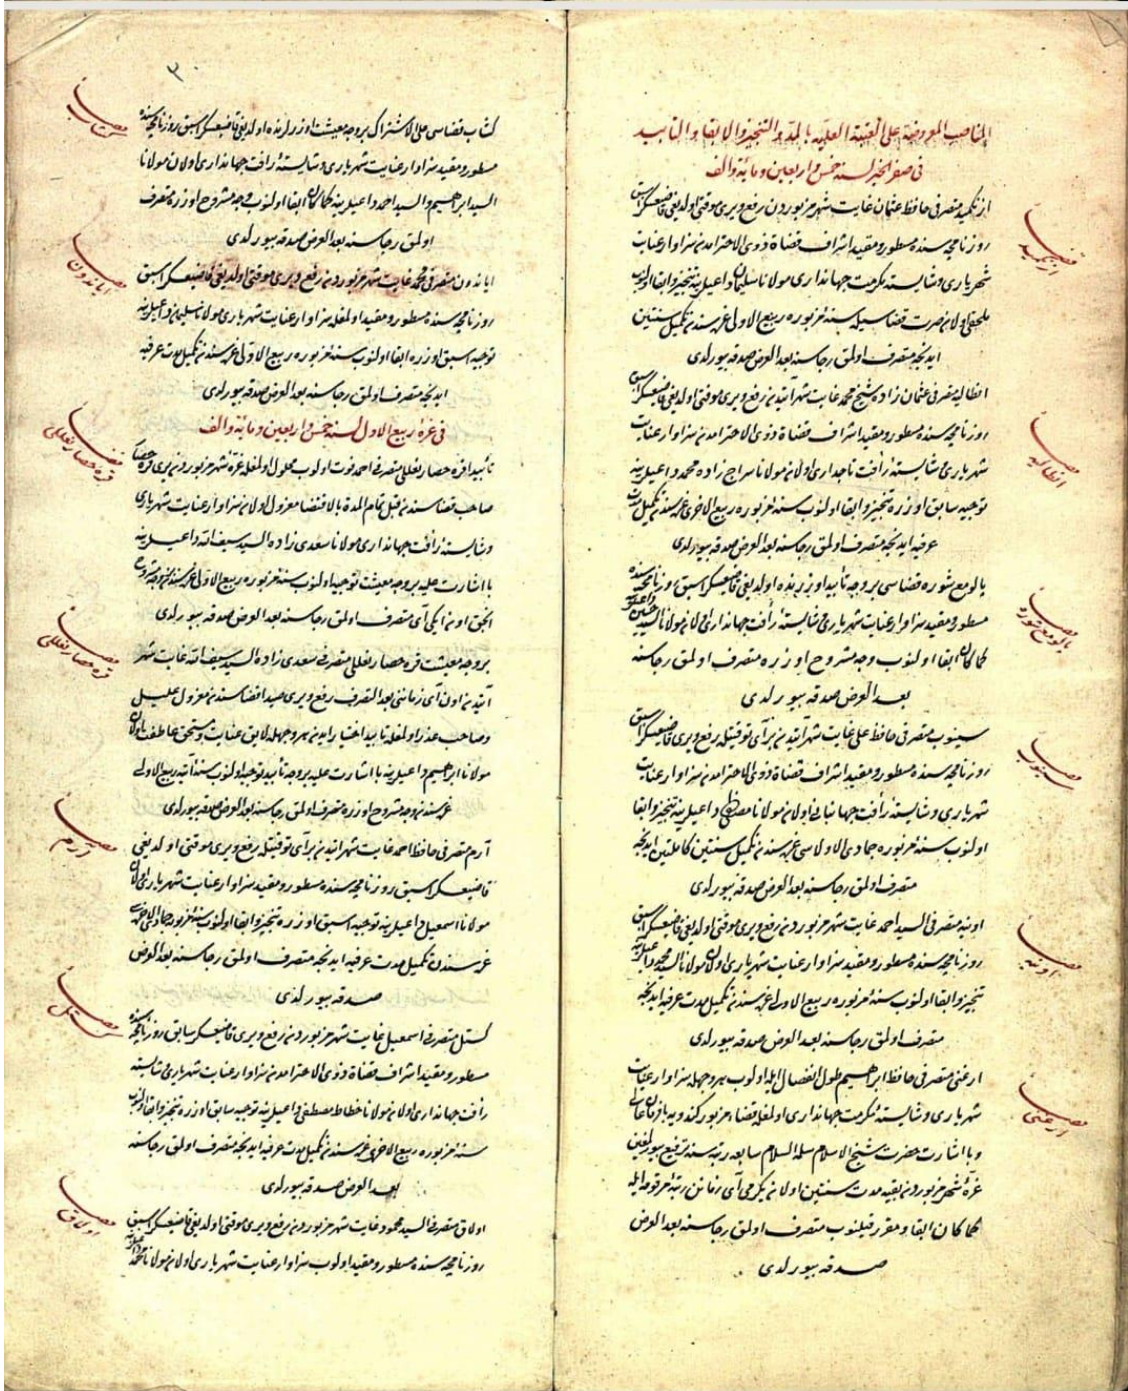 المناصب المعروضة على العتبة العلية بالمد والتنجيز والابقا والتابيد
فى صفر الخير لسنة خمس واربعين ومائة والف
منصب ازنكميد
ازنكميد متصرفى حافظ عثمان غايت شهر مزبوردن رفع ويرى موقتى اولديغى قاضيعسكر اسبق
روزنامجه سنده مسطور ومقيد اشراف قضاة ذوى الاحترامدن سزاوار عنايت
شهريارى وشايستهٔ مكرمت جهاندارى مولانا سليمان داعيلرينه تنجيز وابقا اولنوب
ملحقى اولان قضاسيله سنهٔ مزبوره ربيع الاولى غره سندن تكميل سنتين
ايدنجه متصرف اولمق رجاسنه بعد العرض صدقه بيورلدى
منصب انطاليه
انطاليه متصرفى عثمان زاده شيخ محمد غايت شهر آتيدن رفع ويرى موقتى اولديغى قاضيعسكر اسبق
روزنامجه سنده مسطور ومقيد اشراف قضاة ذوى الاحترامدن سزاوار عنايت
شهريارى وشايستهٔ رأفت تاجدارى اولان مولانا سراج زاده محمد داعيلرينه
توجيه سابق اوزره تنجيز وابقا اولنوب سنهٔ مزبوره ربيع الاخرى غره سندن تكميل مدت
عرفيه ايدنجه متصرف اولمق رجاسنه بعد العرض صدقه بيورلدى
منصب يالوو مع شوره
يالوو مع شوره قضاسى بروجه تأبيد اوزرنده اولديغى قاضيعسكر اسبق روزنامجه سنده
مسطور ومقيد سزاوار عنايت شهريارى وشايستهٔ رأفت جهاندارى اولان مولانا السيد حسين داعيلرينه
كماكان ابقا اولنوب وجه مشروح اوزره متصرف اولمق رجاسنه
بعد العرض صدقه بيورلدى
منصب سينوب
سينوب متصرفى حافظ على غايت شهر آتيدن بر آى توقيتله رفع ويرى قاضيعسكر اسبق
روزنامجه سنده مسطور ومقيد اشراف قضاة ذوى الاحترامدن سزاوار عنايت
شهريارى وشايستهٔ رأفت جهانبانى اولان مولانا مصطفى داعيلرينه تنجيز وابقا
اولنوب سنهٔ مزبوره جمادى الاولاسى غره سندن تكميل سنتين كاملتين ايدنجه
متصرف اولمق رجاسنه بعد العرض صدقه بيورلدى
منصب اونيه
اونيه متصرفى السيد احمد غايت شهر مزبوردن رفع ويرى موقتى اولديغى قاضيعسكر اسبق
روزنامجه سنده مسطور ومقيد سزاوار عنايت شهريارى اولان مولانا السيد محمود داعيلرينه
تنجيز وابقا اولنوب سنهٔ مزبوره ربيع الاولى غره سندن تكميل مدت عرفيه ايدنجه
متصرف اولمق رجاسنه بعد العرض صدقه بيورلدى
منصب ارغنى
ارغنى متصرفى حافظ ابراهيم طول انفصال ايله اولوب بهر وجهله سزاوار عنايت
شهريارى وشايستهٔ مكرمت جهاندارى اولمغله قضاء مزبور كندويه با فرمان عالى
وبا اشارت حضرت شيخ الاسلام سلمه السلام سابعه رتبه سنه ترفيع بيورلمغين
غرهٔ شهر مزبوردن بقيه مدت سنتين اولان يكرمى آى زماتن رتبهٔ مرقومه ايله
كماكان ابقا ومقرر قيلنوب متصرف اولمق رجاسنه بعد العرض
صدقه بيورلدى
٣٠
منصب كشاب
كشاب قضاسى على الاشتراك بروجه معيشت اوزرلرنده اولديغى قاضيعسكر اسبق روزنامجه سنده
مسطور ومقيد سزاوار عنايت شهريارى وشايستهٔ رأفت جهاندارى اولان مولانا
السيد ابراهيم والسيد احمد داعيلرينه كماكان ابقا اولنوب وجه مشروح اوزره متصرف
اولمق رجاسنه بعد العرض صدقه بيورلدى
منصب اياندون
اياندون متصرفى محمد غايت شهر مزبوردن رفع ويرى موقتى اولديغى قاضيعسكر اسبق
روزنامجه سنده مسطور ومقيد اولمغله سزاوار عنايت شهريارى مولانا سليمان داعيلرينه
توجيه اسبق اوزره ابقا اولنوب سنهٔ مزبوره ربيع الاولى غره سندن تكميل مدت عرفيه
ايدنجه متصرف اولمق رجاسنه بعد العرض صدقه بيورلدى
فى غرة ربيع الاول لسنة خمس واربعين ومائة والف
قره حصار نعللى
تأبيدا قره حصار نعللى متصرفى احمد فوت اولوب محلول اولمغله غرهٔ شهر مزبوردن يرى قره حصار
صاحب قضاسندن قبل تمام المدة بالاقتضا معزول اولان سزاوار عنايت شهريارى
وشايستهٔ رأفت جهاندارى مولانا سعدى زاده السيد سيف الله داعيلرينه
با اشارت عليه بروجه معيشت توجيه اولنوب سنهٔ مزبوره ربيع الاولى غره سندن وجه مشروح
انجق اون ايكى آى متصرف اولمق رجاسنه بعد العرض صدقه بيورلدى
منصب قره حصار نعللى
بروجه معيشت قره حصار نعللى متصرفى سعدى زاده السيد سيف الله غايت شهر
آتيدن اون آى زماننى بعد التصرف رفع ويرى صيدا قضاسندن معزول عليل
وصاحب عذر اولمغله تأبيد اختيار ايدن بهر وجهله لايق عنايت ومستحق عاطفت اولان
مولانا ابراهيم داعيلرينه با اشارت عليه بروجه تأبيد توجيه اولنوب سنهٔ آتيه ربيع الاولى
غره سندن وجه مشروح اوزره متصرف اولمق رجاسنه بعد العرض صدقه بيورلدى
منصب آرم
آرم متصرفى حافظ احمد غايت شهر آتيدن بر آى توقيتله رفع ويرى موقتى اولديغى
قاضيعسكر اسبق روزنامجه سنده مسطور ومقيد سزاوار عنايت شهريارى اولان
مولانا اسمعيل داعيلرينه توجيه اسبق اوزره تنجيز وابقا اولنوب سنهٔ مزبوره جمادى
غره سندن تكميل مدت عرفيه ايدنجه متصرف اولمق رجاسنه بعد العرض
صدقه بيورلدى
منصب كستل
كستل متصرفى اسمعيل غايت شهر مزبوردن رفع ويرى قاضيعسكر سابق روزنامجه سنده
مسطور ومقيد اشراف قضاة ذوى الاحترامدن سزاوار عنايت شهريارى شايستهٔ
رأفت جهاندارى اولان مولانا خطاط مصطفى داعيلرينه توجيه سابق اوزره تنجيز وابقا اولنوب
سنهٔ مزبوره ربيع الاخرى غره سندن تكميل مدت عرفيه ايدنجه متصرف اولمق رجاسنه
بعد العرض صدقه بيورلدى
منصب اولاق
اولاق متصرفى السيد محمود غايت شهر مزبوردن رفع ويرى موقتى اولديغى قاضيعسكر اسبق
روزنامجه سنده مسطور ومقيد اولوب سزاوار عنايت شهريارى اولان مولانا محمد داعيلرينه